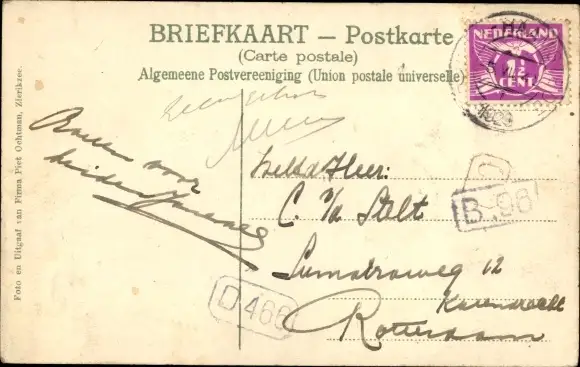 BRIEFKAART — Postkarte
(Carte postale)
Algemeene Postvereeniging (Union postale universelle)
NEDERLAND
1½
CENT
HA
1929
Foto en Uitgaaf van Firma Piet Ochtman, Zierikzee.
voor
Heer:
C. v/d Stelt
Sumatraweg 12
Katendrecht
Rotterdam
B.96
D466